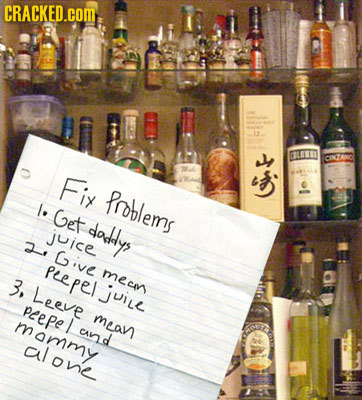 CRACKED.COM
山
崎
CINZANO
Fix Problems
1. Get daddys
juice
2. Give mean
peepel juice
3. Leeve mean
peepel and
mommy
alone